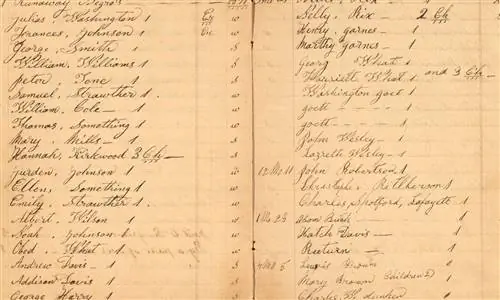 Runaway Negros
Julia Washington 1 Ch w
Frances, Johnson 1 Ch w
George, Smith 1 S
William, Williams 1 S
Peter, Tone 1 S
Samuel, Strawther 1. S
William, Cole — 1 w
Thomas, Something 1 w
Mary, Mills — 1 S
Hannah, Kirkwood 3 Ch —
Jurden, Johnson 1 w
Ellen, Something 1 w
Emily, Strawther 1 w
Albert, Wilson 1 w
Noah, Johnson 1 w
Obed, What 1 w
Andrew Davis — 1 S
Addison Davis 1 S
George Harry 1 S
Selby, Rix — 2 Ch
Henry, Garnes — 1
Marthy Garnes — 1
Georg What 1
Harriett What 1 and 3 Ch —
Washington Goet 1
goett - - - - 1
goett - - - - 1
John Wesley — 1
Lazreth Wesley — 1
12 Mo 11 John Robertson 1
Charles, Shotford, Lafayett 1
1 Mo 23 Abom Burk — 1
Hatch Davis — 1
Return — 1
4 Mo 5 Lewis Brown
Mary Brown Children 3 1
Charles W. dunken 1